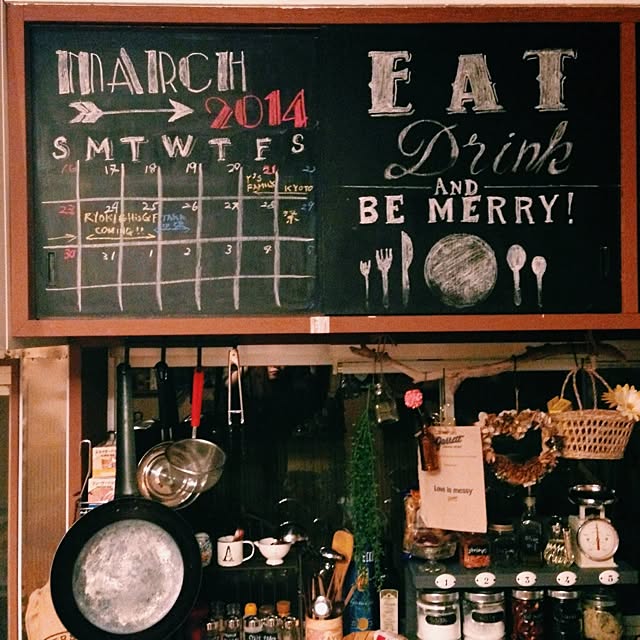 MARCH
2014
S M T W T F S
16 17 18 19 20 21 22
Y'S FAMILY KYOTO
23 24 25 26 27 28 29
COMING!!
30 31 1 2 3 4 5
EAT
Drink
AND
BE MERRY!
Garrett
Love is messy
A
1 2 3 4 5